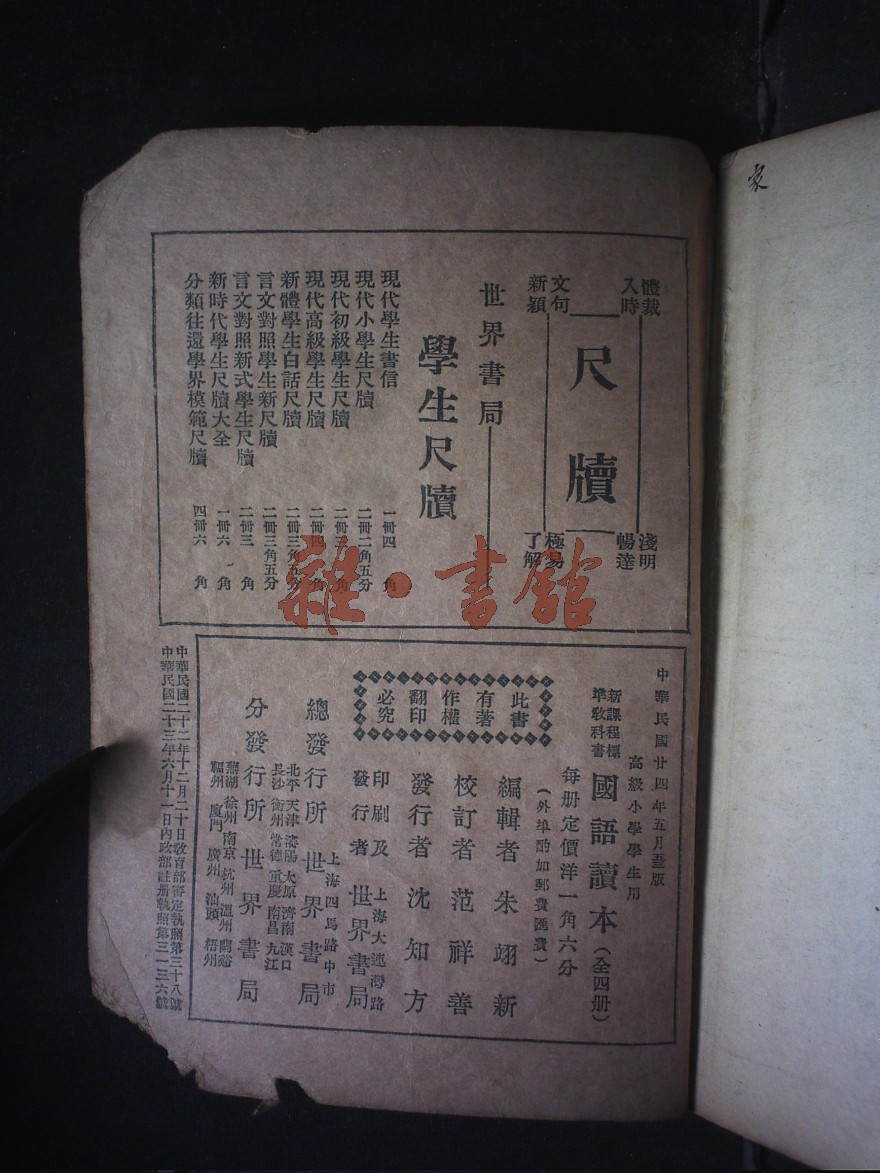 家
體裁
入時
淺明
暢達
尺牘
文句
新穎
極易
了解
世界書局
學生尺牘
現代學生書信 一冊四角
現代小學生尺牘 二冊二角五分
現代初級學生尺牘 二冊三
現代高級學生尺牘 二冊四角
新體學生白話尺牘 二冊三角五分
言文對照學生新尺牘 二冊三角五分
言文對照新式學生尺牘 二冊三角
新時代學生尺牘大全 一冊六角
分類往還學界模範尺牘 四冊六角
雜·書館
中華民國廿四年五月 版
高級小學學生用
新課程標
準教科書
國語讀本(全四册)
每册定價洋一角六分
(外埠酌加郵費匯費)
此書
有著
作權
翻印
必究
編輯者 朱翊新
校訂者 范祥善
發行者 沈知方
印刷及
發行者
上海大連灣路
世界書局
上海四馬路中市
總發行所 世界書局
北平 天津 瀋陽 太原 濟南 漢口
長沙 衡州 常德 重慶 南昌 九江
分發行所 世界書局
蕪湖 徐州 南京 杭州 溫州 蘭谿
福州 廈門 廣州 汕頭 梧州
中華民國二十二年十二月二十日教育部審定執照第三十八號
中華民國二十三年六月十一日內政部註册執照第三一三六號